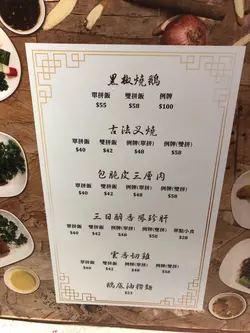 黑椒燒鵝
單拼飯 雙拼飯 例牌
$55 $58 $100
古法叉燒
單拼飯 雙拼飯 例牌(單拼) 例牌(雙拼)
$40 $42 $40 $58
包脆皮三層肉
單拼飯 雙拼飯 例牌(單拼) 例牌(雙拼)
$40 $42 $40 $58
三日醉香鳳珍肝
單拼飯 雙拼飯 例牌(單拼) 例牌(雙拼) 單點小食
$40 $42 $40 $58 $28
雲香切雞
單拼飯 雙拼飯 例牌(單拼) 例牌(雙拼)
$40 $42 $40 $58
鵝底油撈麵
$23